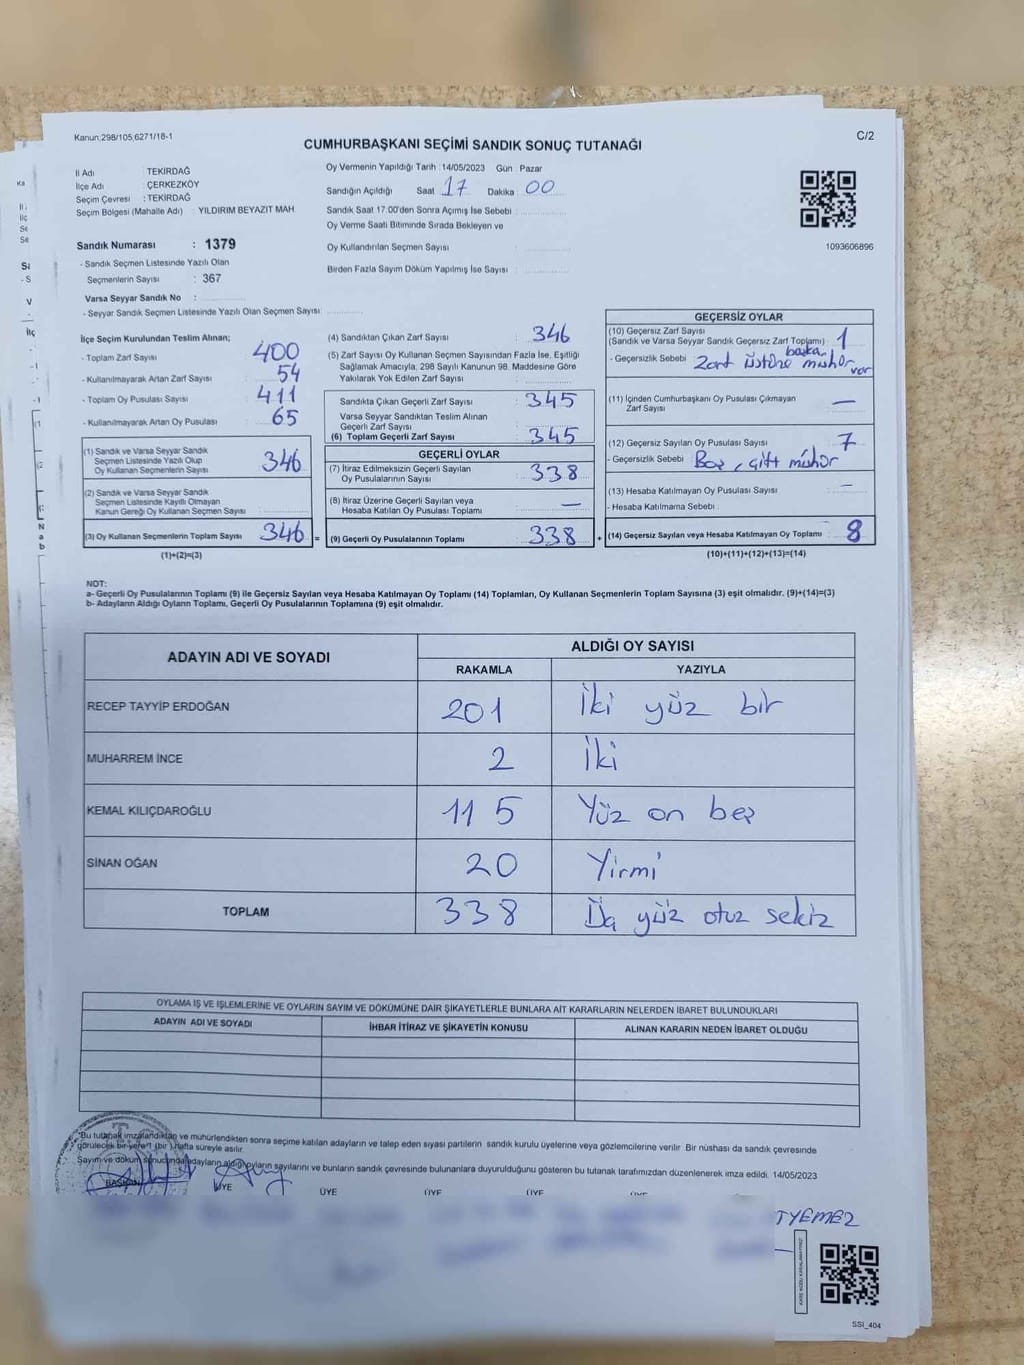 Kanun:298/105,6271/18-1
C/2
CUMHURBAŞKANI SEÇİMİ SANDIK SONUÇ TUTANAĞI
İl Adı TEKİRDAĞ
İlçe Adı ÇERKEZKÖY
Seçim Çevresi : TEKİRDAĞ
Seçim Bölgesi (Mahalle Adı) : YILDIRIM BEYAZIT MAH.
Sandık Numarası : 1379
- Sandık Seçmen Listesinde Yazılı Olan
Seçmenlerin Sayısı : 367
Varsa Seyyar Sandık No :
- Seyyar Sandık Seçmen Listesinde Yazılı Olan Seçmen Sayısı:
Oy Vermenin Yapıldığı Tarih :14/05/2023 Gün : Pazar
Sandığın Açıldığı Saat 17 Dakika 00
Sandık Saat 17:00'den Sonra Açımış İse Sebebi :
Oy Verme Saati Bitiminde Sırada Bekleyen ve
Oy Kullandırılan Seçmen Sayısı :
Birden Fazla Sayım Döküm Yapılmış İse Sayısı :
1093606896
İlçe Seçim Kurulundan Teslim Alınan;
- Toplam Zarf Sayısı 400
- Kullanılmayarak Artan Zarf Sayısı 54
- Toplam Oy Pusulası Sayısı 411
- Kullanılmayarak Artan Oy Pusulası 65
(1) Sandık ve Varsa Seyyar Sandık
Seçmen Listesinde Yazılı Olup
Oy Kullanan Seçmenlerin Sayısı 346
(2) Sandık ve Varsa Seyyar Sandık
Seçmen Listesinde Kayıtlı Olmayan
Kanun Gereği Oy Kullanan Seçmen Sayısı
(3) Oy Kullanan Seçmenlerin Toplam Sayısı 346 =
(1)+(2)=(3)
(4) Sandıktan Çıkan Zarf Sayısı : 346
(5) Zarf Sayısı Oy Kullanan Seçmen Sayısından Fazla İse, Eşitliği
Sağlamak Amacıyla, 298 Sayılı Kanunun 98. Maddesine Göre
Yakılarak Yok Edilen Zarf Sayısı :
Sandıkta Çıkan Geçerli Zarf Sayısı : 345
Varsa Seyyar Sandıktan Teslim Alınan
Geçerli Zarf Sayısı :
(6) Toplam Geçerli Zarf Sayısı : 345
GEÇERLİ OYLAR
(7) İtiraz Edilmeksizin Geçerli Sayılan
Oy Pusulalarının Sayısı : 338
(8) İtiraz Üzerine Geçerli Sayılan veya
Hesaba Katılan Oy Pusulası Toplamı : —
(9) Geçerli Oy Pusulalarının Toplamı : 338 +
GEÇERSİZ OYLAR
(10) Geçersiz Zarf Sayısı
(Sandık ve Varsa Seyyar Sandık Geçersiz Zarf Toplamı) : 1
- Geçersizlik Sebebi : Zarf üstüne başka mühür var
(11) İçinden Cumhurbaşkanı Oy Pusulası Çıkmayan
Zarf Sayısı : —
(12) Geçersiz Sayılan Oy Pusulası Sayısı : 7
- Geçersizlik Sebebi : Boş, çift mühür
(13) Hesaba Katılmayan Oy Pusulası Sayısı : —
- Hesaba Katılmama Sebebi :
(14) Geçersiz Sayılan veya Hesaba Katılmayan Oy Toplamı : 8
(10)+(11)+(12)+(13)=(14)
NOT:
a- Geçerli Oy Pusulalarının Toplamı (9) ile Geçersiz Sayılan veya Hesaba Katılmayan Oy Toplamı (14) Toplamları, Oy Kullanan Seçmenlerin Toplam Sayısına (3) eşit olmalıdır. (9)+(14)=(3)
b- Adayların Aldığı Oyların Toplamı, Geçerli Oy Pusulalarının Toplamına (9) eşit olmalıdır.
ADAYIN ADI VE SOYADI
ALDIĞI OY SAYISI
RAKAMLA YAZIYLA
RECEP TAYYİP ERDOĞAN 201 İki yüz bir
MUHARREM İNCE 2 İki
KEMAL KILIÇDAROĞLU 115 Yüz on beş
SİNAN OĞAN 20 Yirmi
TOPLAM 338 Üç yüz otuz sekiz
OYLAMA İŞ VE İŞLEMLERİNE VE OYLARIN SAYIM VE DÖKÜMÜNE DAİR ŞİKAYETLERLE BUNLARA AİT KARARLARIN NELERDEN İBARET BULUNDUKLARI
ADAYIN ADI VE SOYADI İHBAR İTİRAZ VE ŞİKAYETİN KONUSU ALINAN KARARIN NEDEN İBARET OLDUĞU
Bu tutanak imzalandıktan ve mühürlendikten sonra seçime katılan adayların ve talep eden siyasi partilerin sandık kurulu üyelerine veya gözlemcilerine verilir. Bir nüshası da sandık çevresinde
görülecek bir yere 1 (bir) hafta süreyle asılır.
Sayım ve döküm sonucunda adayların aldığı oyların sayılarını ve bunların sandık çevresinde bulunanlara duyurulduğunu gösteren bu tutanak tarafımızdan düzenlenerek imza edildi. 14/05/2023
BAŞKAN ÜYE ÜYE ÜYE ÜYE
TYEMEZ
SSI_404